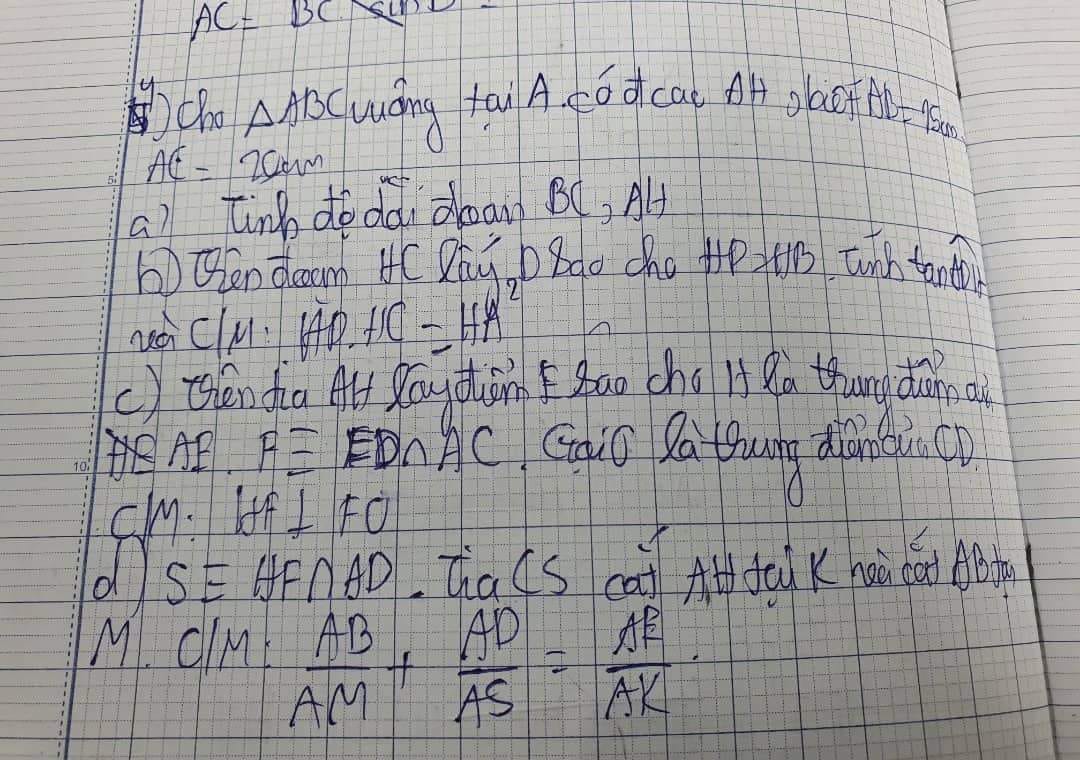 AC = BC.
4) Cho △ABC vuông tại A có đcao AH, biết AB = 15cm
AC = 20cm
a) Tính độ dài đoạn BC, AH
b) Trên đoạn HC lấy D sao cho HD = HB. Tính tan ADH
và C/M: HD.HC = HA²
c) Trên tia AH lấy điểm E sao cho H là trung điểm của
AE. F ≡ ED∩AC. Gọi O là trung điểm của CD.
C/M: HF ⊥ FO
d) S ≡ HF∩AD. Tia CS cắt AH tại K và cắt AB tại
M. C/M: AB/AM + AD/AS = AE/AK.